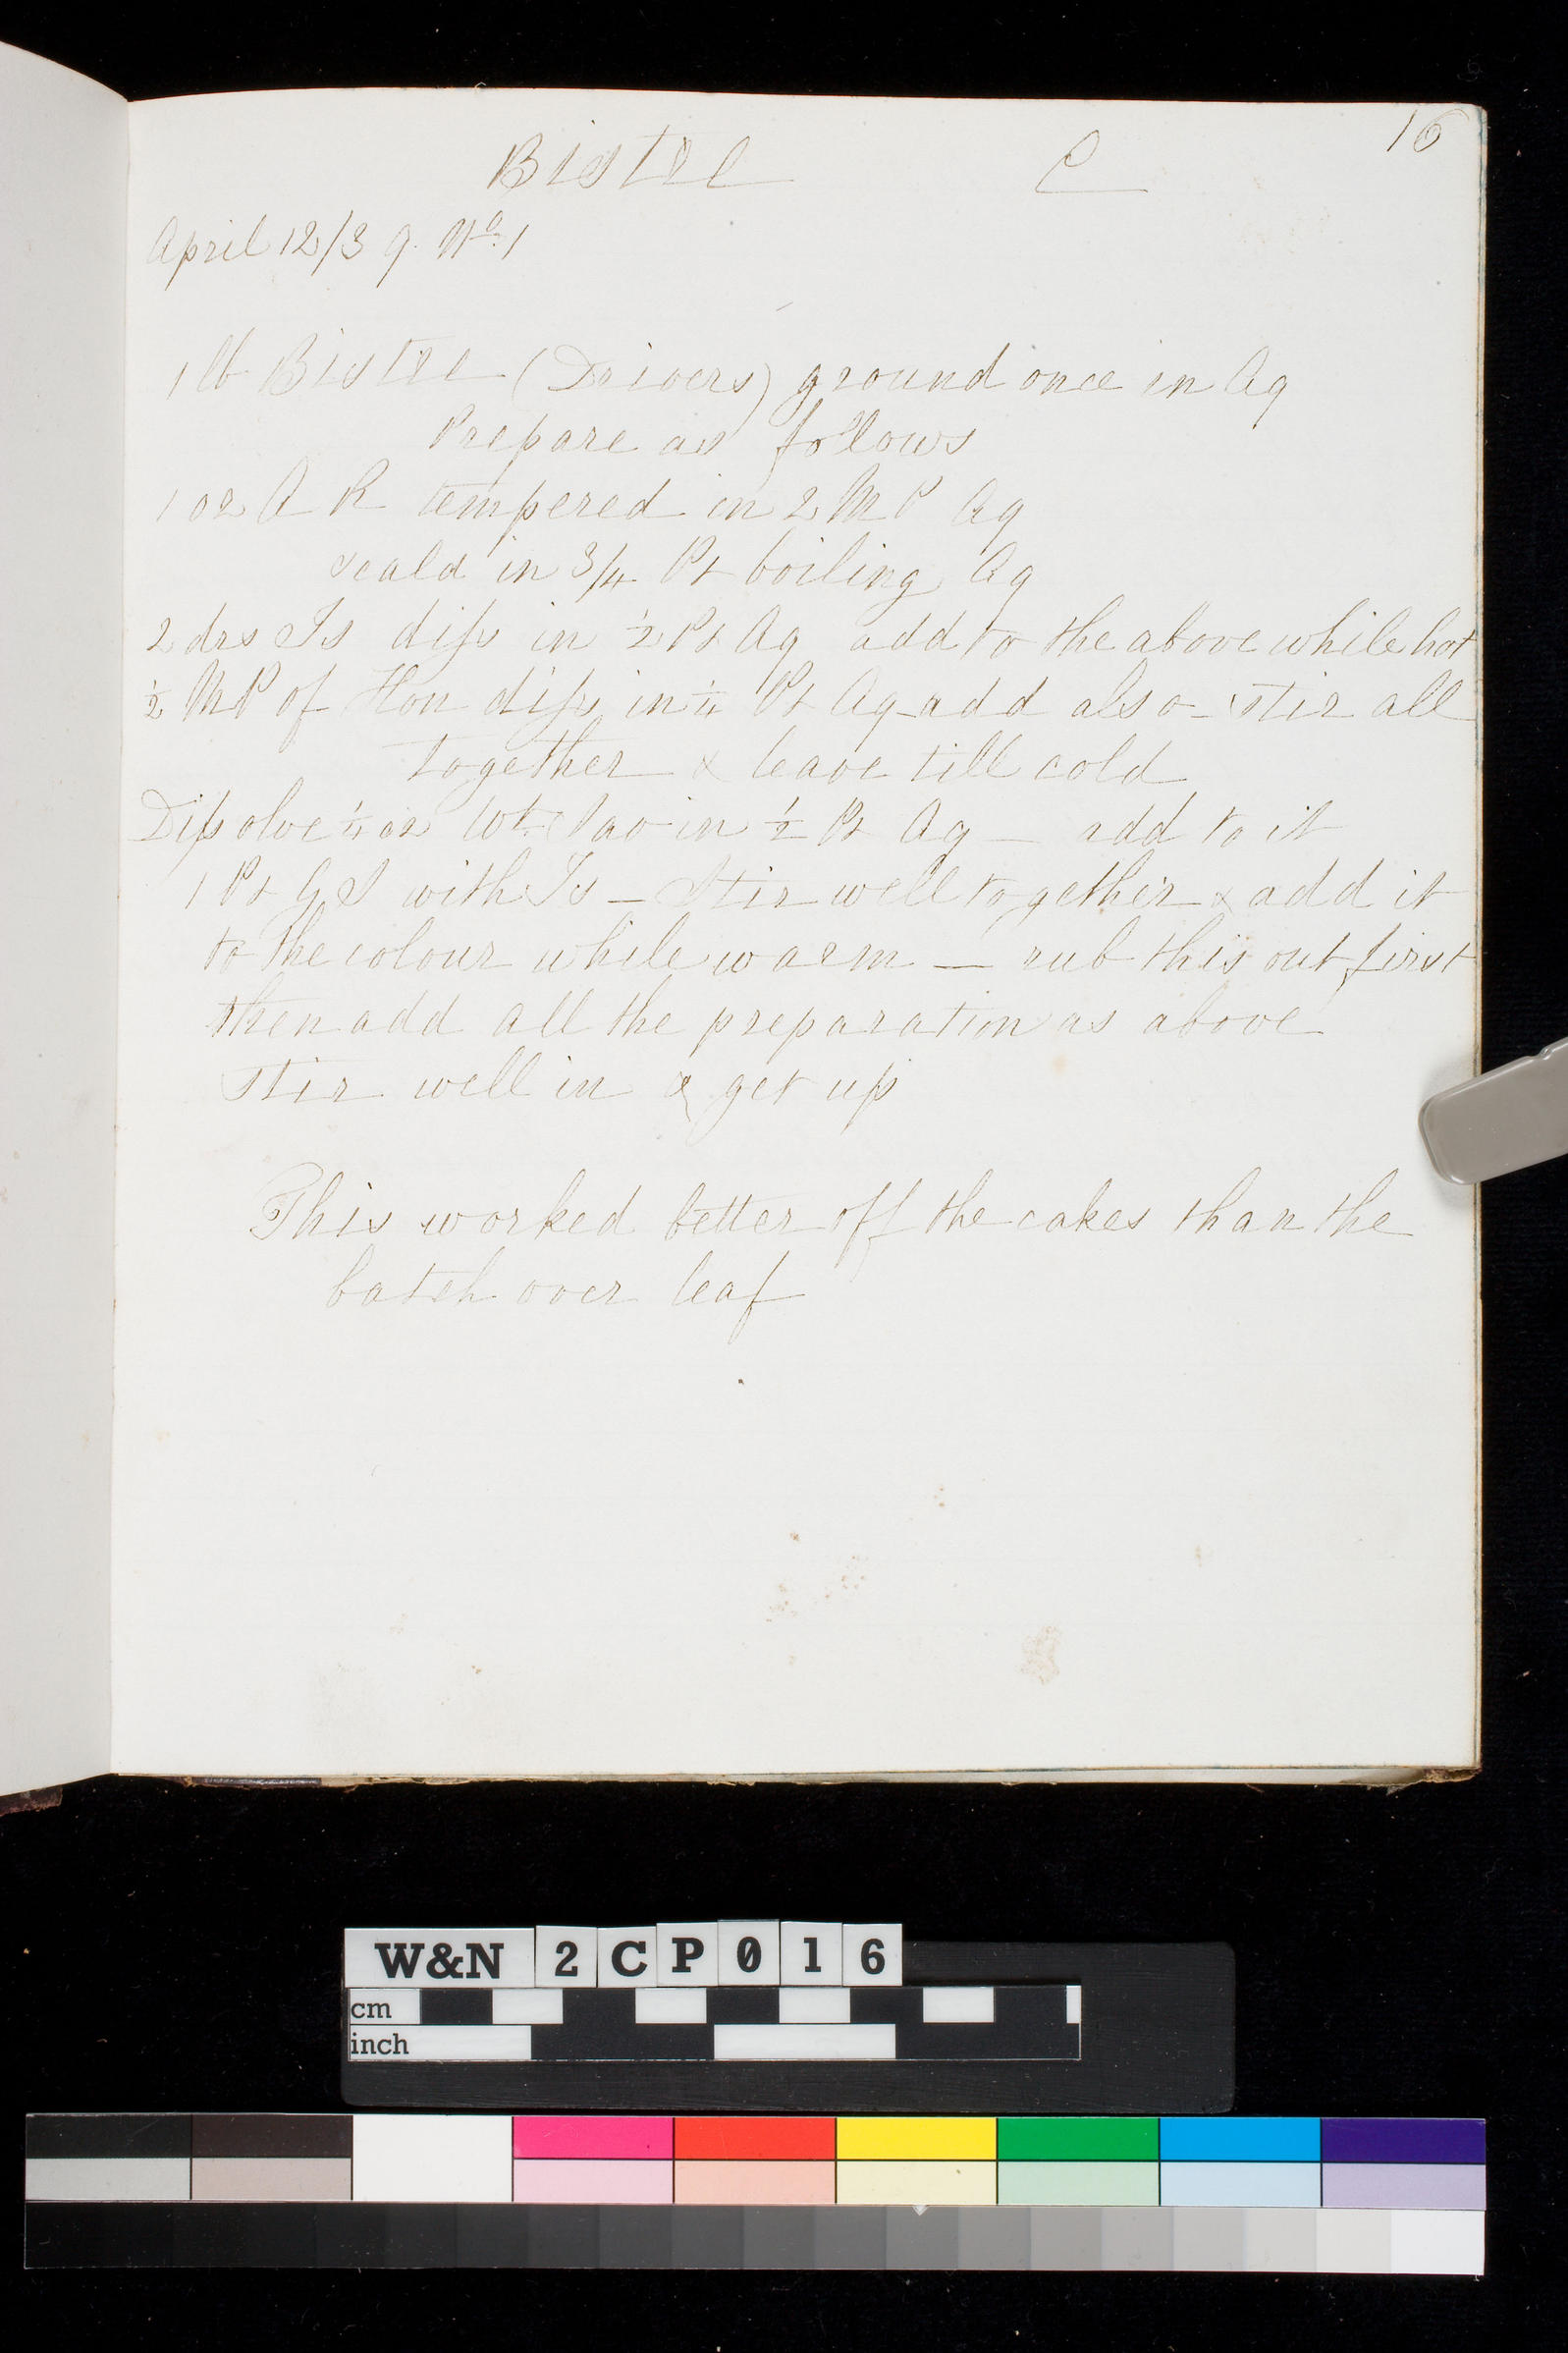 16
Bistre C
April 12/39. No. 1
1 lb Bistre (Drivers) ground once in Aq
Prepare as follows
1 oz A R tempered in 2 MP Aq
scald in 3/4 Pt boiling Aq
2 drs Is diſs in ½ Pt Aq add to the above while hot
½ MP of Hon diſs in ¼ Pt Aq - add also - stir all
together & leave till cold
Diſsolve ¼ oz Wt in ½ Pt Aq — add to it
1 Pt G S with Is — Stir well together & add it
to the colour while warm — rub this out first
then add all the preparation as above
stir well in & get up
This worked better off the cakes than the
batch over leaf
W&N 2CP016
cm
inch